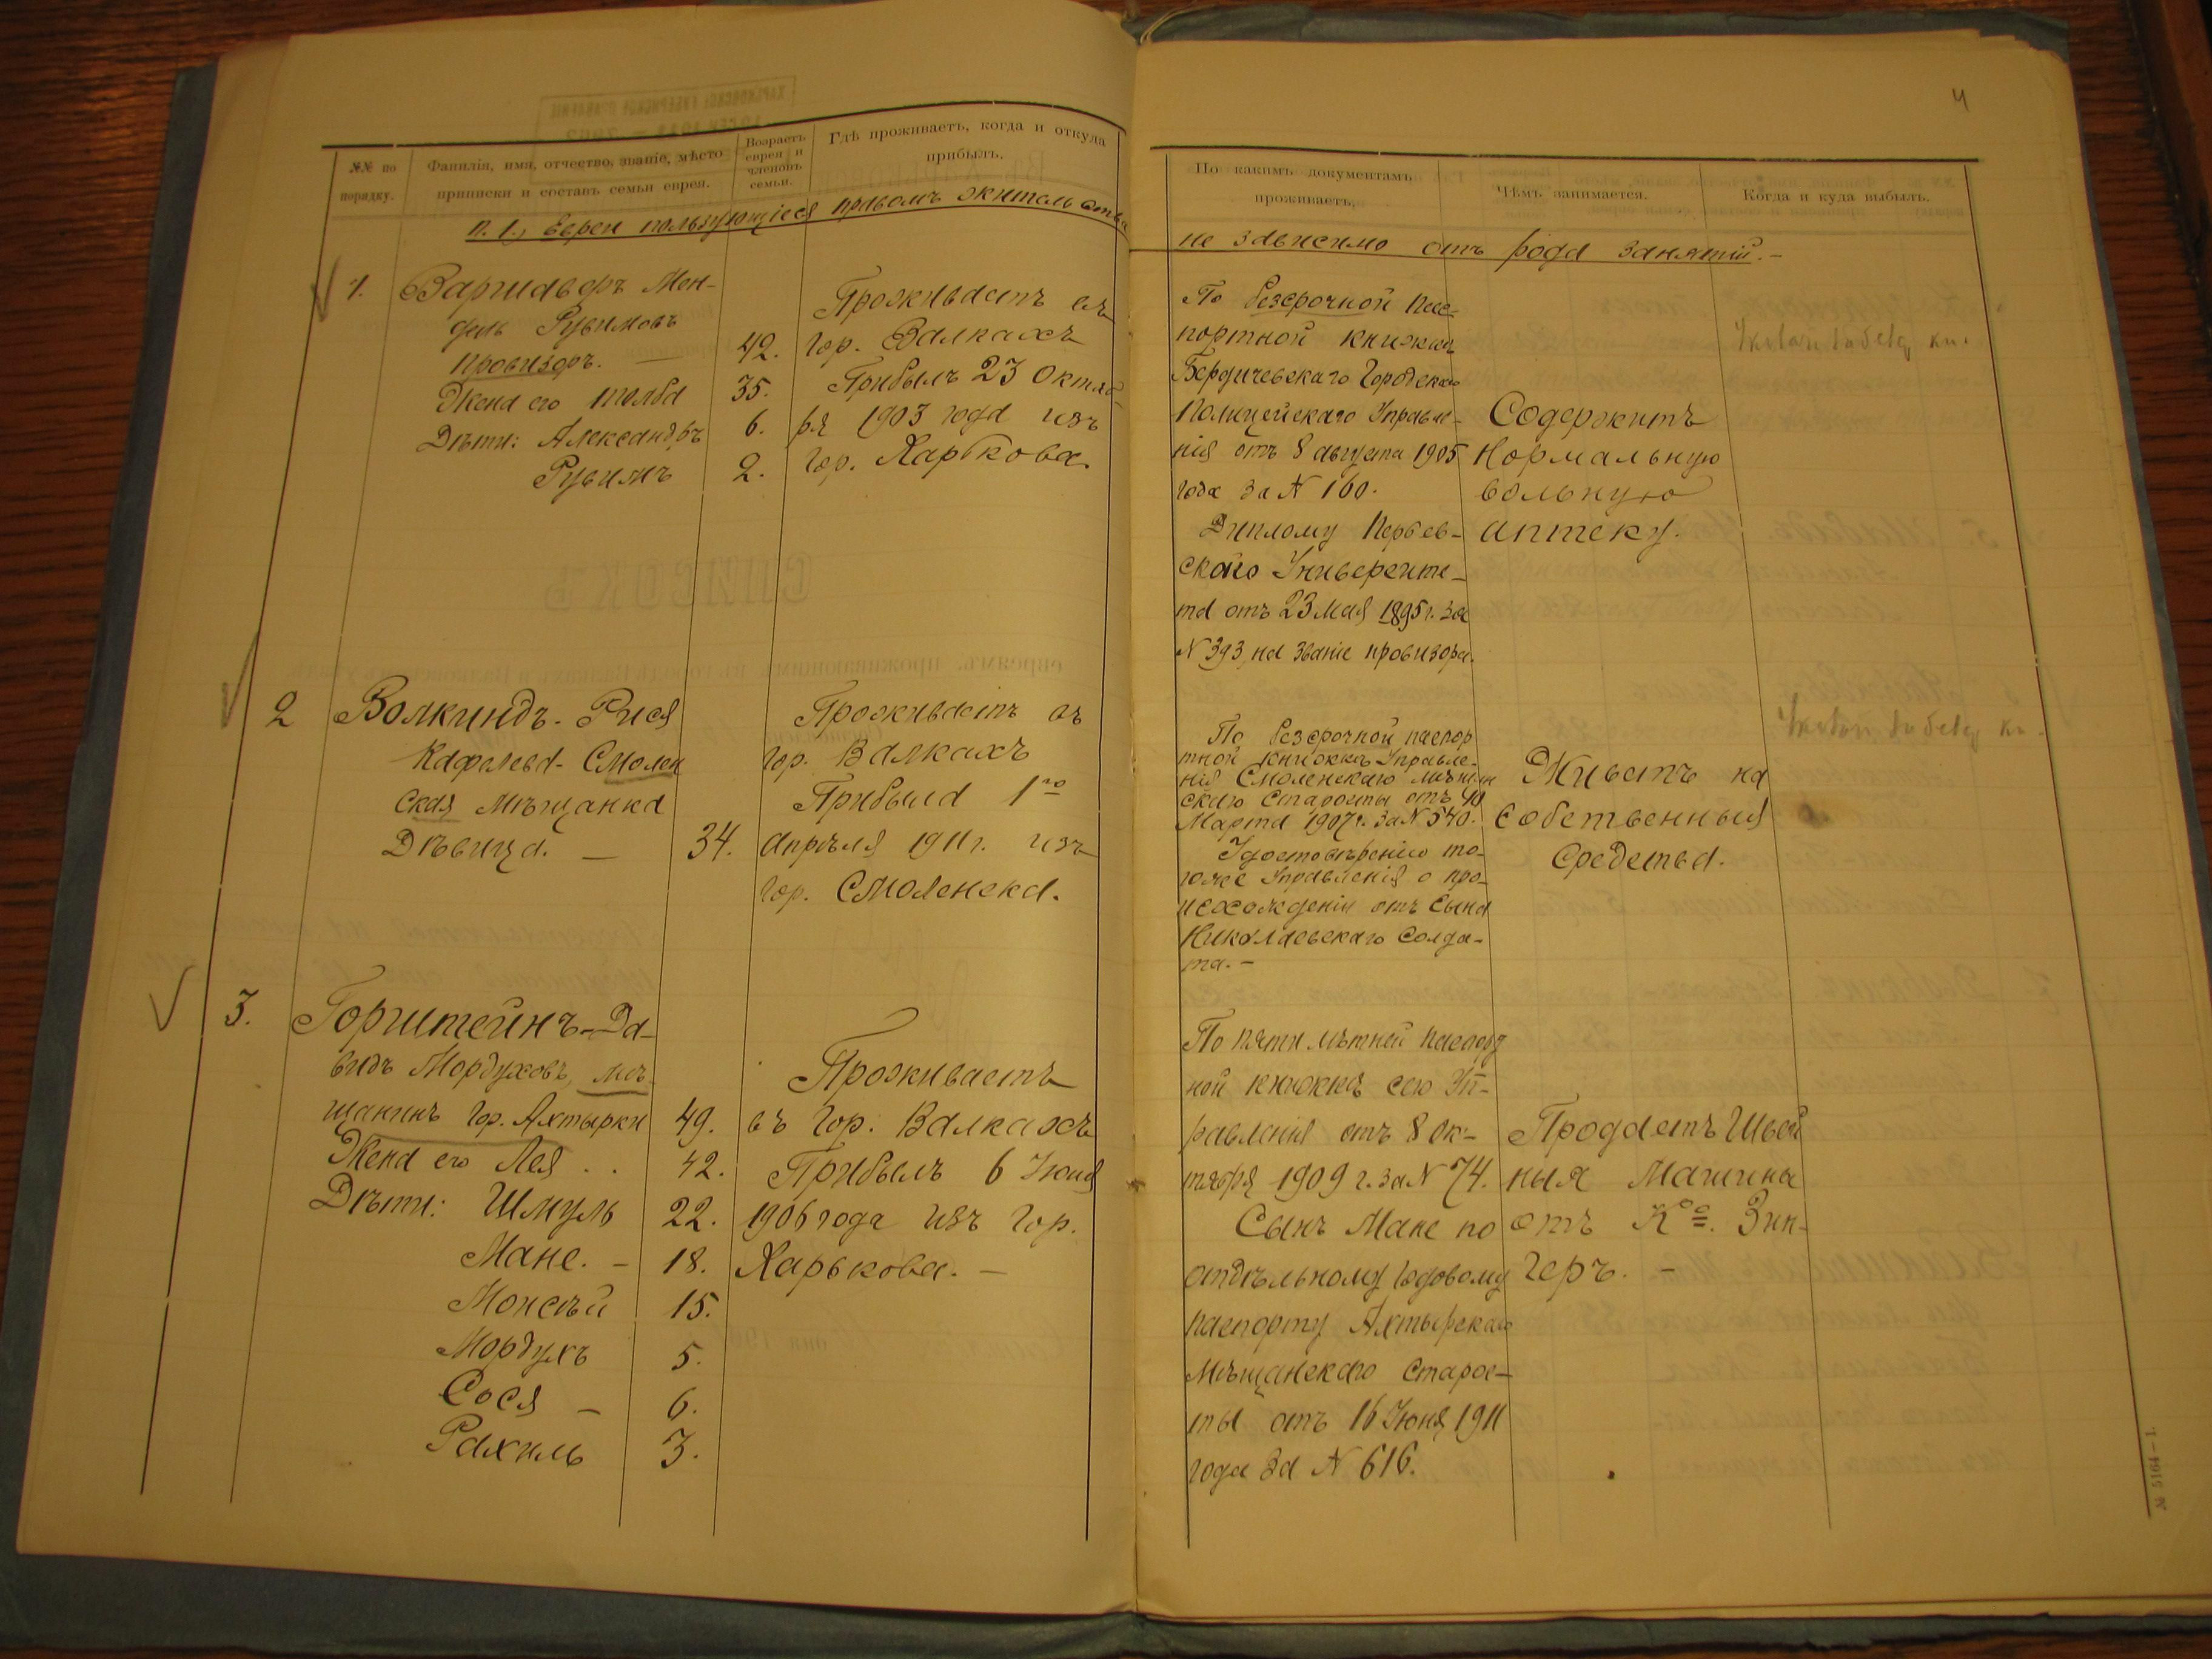 4
№№ по порядку.
Фамилія, имя, отчество, званіе, мѣсто приписки и составъ семьи еврея.
Возрастъ еврея и членовъ семьи.
Гдѣ проживаетъ, когда и откуда прибылъ.
По какимъ документамъ проживаетъ.
Чѣмъ занимается.
Когда и куда выбылъ.
п. 1, Евреи пользующіеся правомъ жительства
не зависимо отъ рода занятій.-
1.
Варшаверъ Мен-
дель Рувимовъ
провизоръ. — 42.
Жена его 35.
Дѣти: Александръ 6.
Рувимъ 2.
Проживаетъ въ
гор. Валкахъ
Прибылъ 23 Октяб-
ря 1903 года изъ
гор. Харькова.
По безсрочной пас-
портной книжкѣ
Бердичевскаго Городского
Полицейскаго Управле-
нія отъ 8 августа 1905
года за № 160.
Диплому
скаго Университе-
та отъ 23 Мая 1895 г. за
№ 393, на званіе провизора.
Содержитъ
Нормальную
вольную
аптеку.
2
Волкиндъ. Рися
Смолен
ская Мѣщанка
Дѣвица. — 34.
Проживаетъ въ
гор. Валкахъ
Прибыла 1го
Апрѣля 1911 г. изъ
гор. Смоленска.
По безсрочной паспор
тной книжкѣ Управле-
нія Смоленскаго мѣщан
скаго Старосты отъ
Марта 1907 г. за № 540.
Удостовѣренію то-
гоже Управленія о про-
исхожденіи отъ сына
Николаевскаго Солда-
та.-
Живетъ на
Собственныя
Средства.
3.
Горштейнъ-Да-
видъ Мордуховъ, мѣ-
щанинъ гор. Ахтырки 49.
Жена его Лея . . 42.
Дѣти: Шмуль 22.
Мане. - 18.
Моисѣй 15.
Мордухъ 5.
Сося - 6.
Рахиль 3.
Проживаетъ
въ гор. Валкахъ
Прибылъ 6 Іюня
1906 года изъ гор.
Харькова. —
По пятилѣтней паспорт
ной книжкѣ сего Уп-
равленія отъ 8 Ок-
тября 1909 г. за № 74.
Сынъ Мане по
отдѣльному годовому
паспорту Ахтырскаго
Мѣщанскаго Старос-
ты отъ 16 Іюня 1911
года за № 616.
Продаетъ Швей
ныя Машины
отъ Ко. Зин-
геръ. -
№ 5164—1.